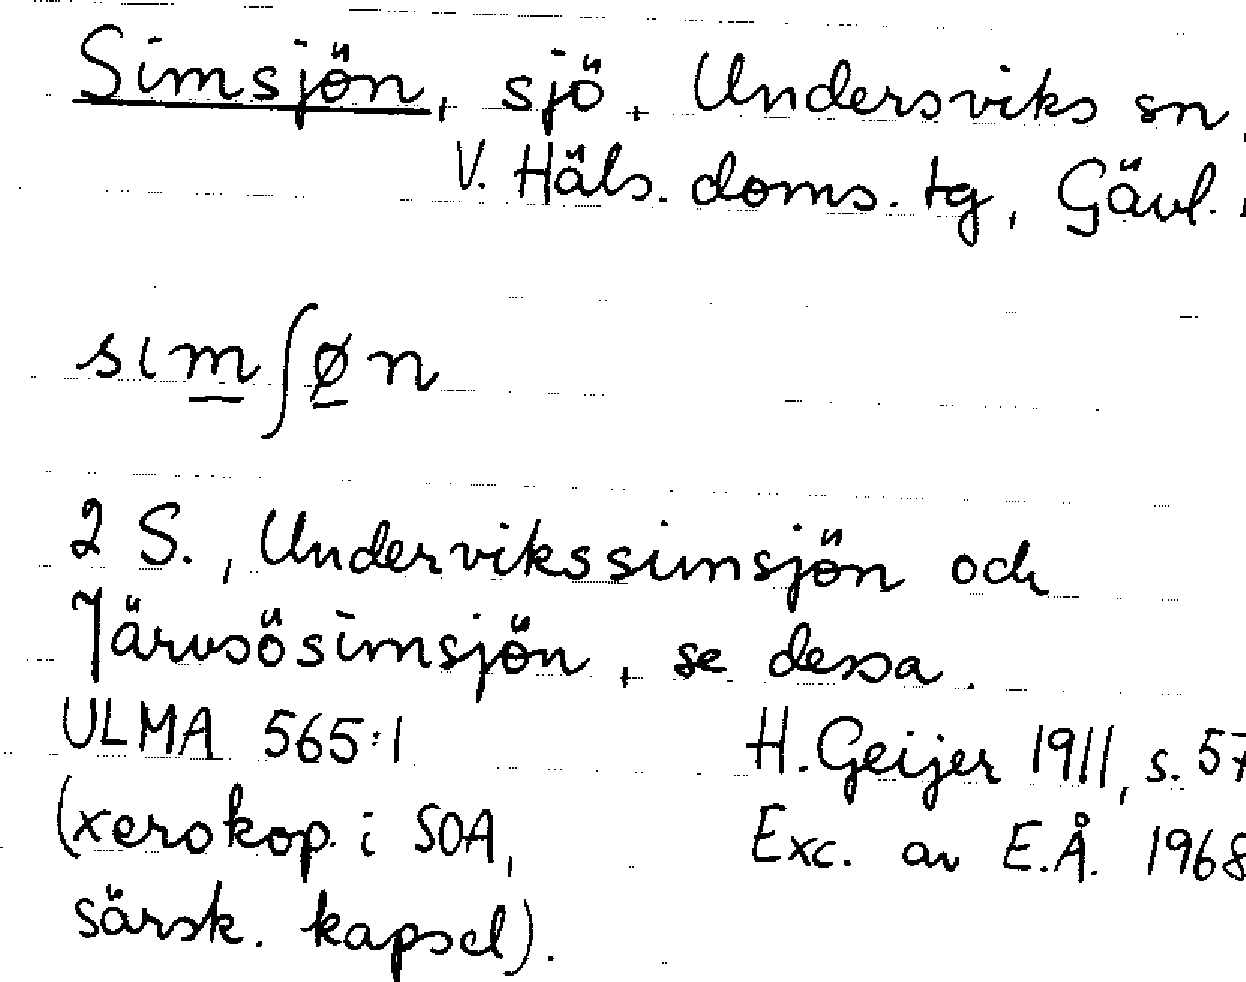 Simsjön, sjö, Undersviks sn,
V. Häls. doms. tg, Gävl.
sim̲ʃø̲n
2 S., Undervikssimsjön och
Järvsösimsjön, se dessa.
ULMA 565:1 H. Geijer 1911, s. 57
(xerokop. i SOA, Exc. av E.Å. 1968
särsk. kapsel).